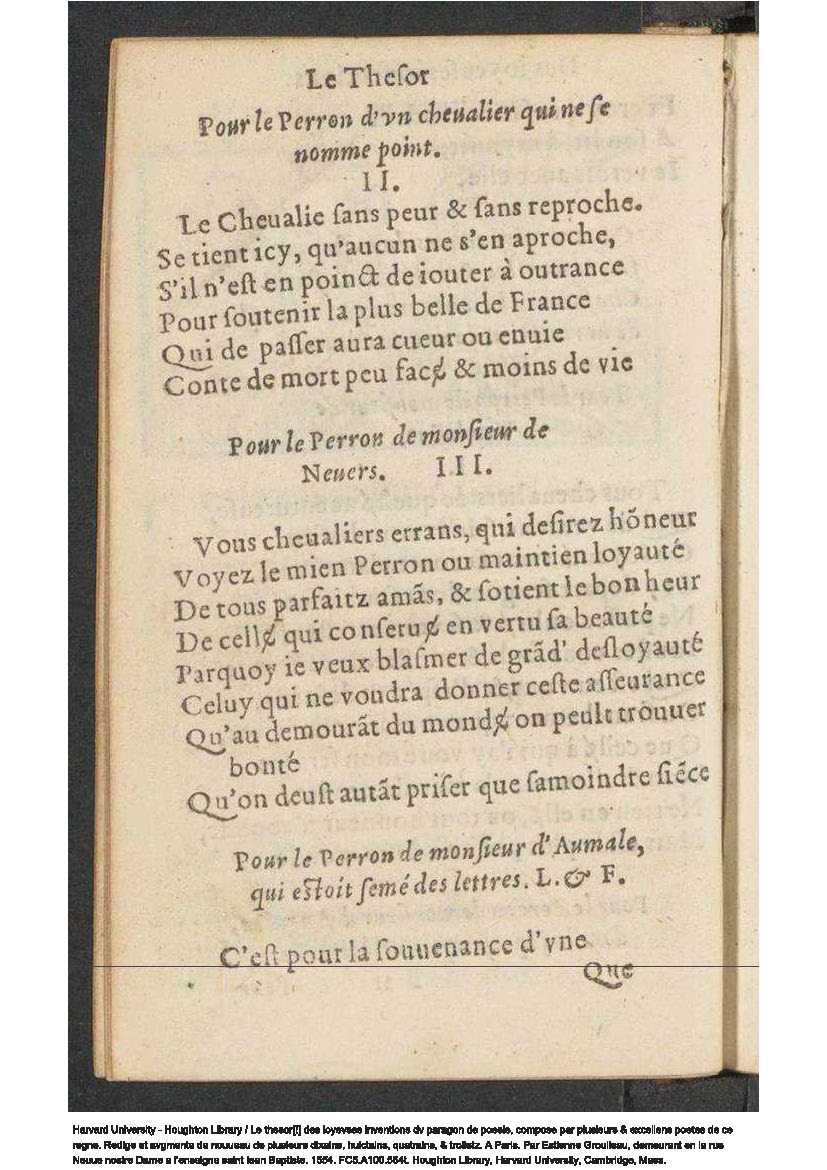 Le Theſor
Pour le Perron d'vn cheualier qui ne ſe
nomme point.
II.
Le Cheualie ſans peur & ſans reproche.
Se tient icy, qu'aucun ne s'en aproche,
S'il n'eſt en poinct de iouter à outrance
Pour ſoutenir la plus belle de France
Qui de paſſer aura cueur ou enuie
Conte de mort peu facɇ & moins de vie
Pour le Perron de monſieur de
Neuers. III.
Vous cheualiers errans, qui deſirez hõneur
Voyez le mien Perron ou maintien loyauté
De tous parfaitz amãs, & ſotient le bon heur
De cellɇ qui conſeruɇ en vertu ſa beauté
Parquoy ie veux blaſmer de grãd' deſloyauté
Celuy qui ne voudra donner ceſte aſſeurance
Qu'au demourãt du mondɇ on peult trouuer
bonté
Qu'on deuſt autãt priſer que ſamoindre ſiẽce
Pour le Perron de monſieur d'Aumale,
qui eſtoit ſemé des lettres. L. & F.
C'eſt pour la ſouuenance d'vne
Que
Harvard University - Houghton Library / Le thesor[!] des ioyevses inventions dv paragon de poesie, compose par plusieurs & excellens poetes de ce
regne. Redige et avgmente de nouueau de plusieurs dixains, huictains, quatrains, & trolletz. A Paris. Par Estienne Groulleau, demeurant en la rue
Neuue nostre Dame a l'enseigne saint Iean Baptiste. 1554. FC5.A100.554t. Houghton Library, Harvard University, Cambridge, Mass.